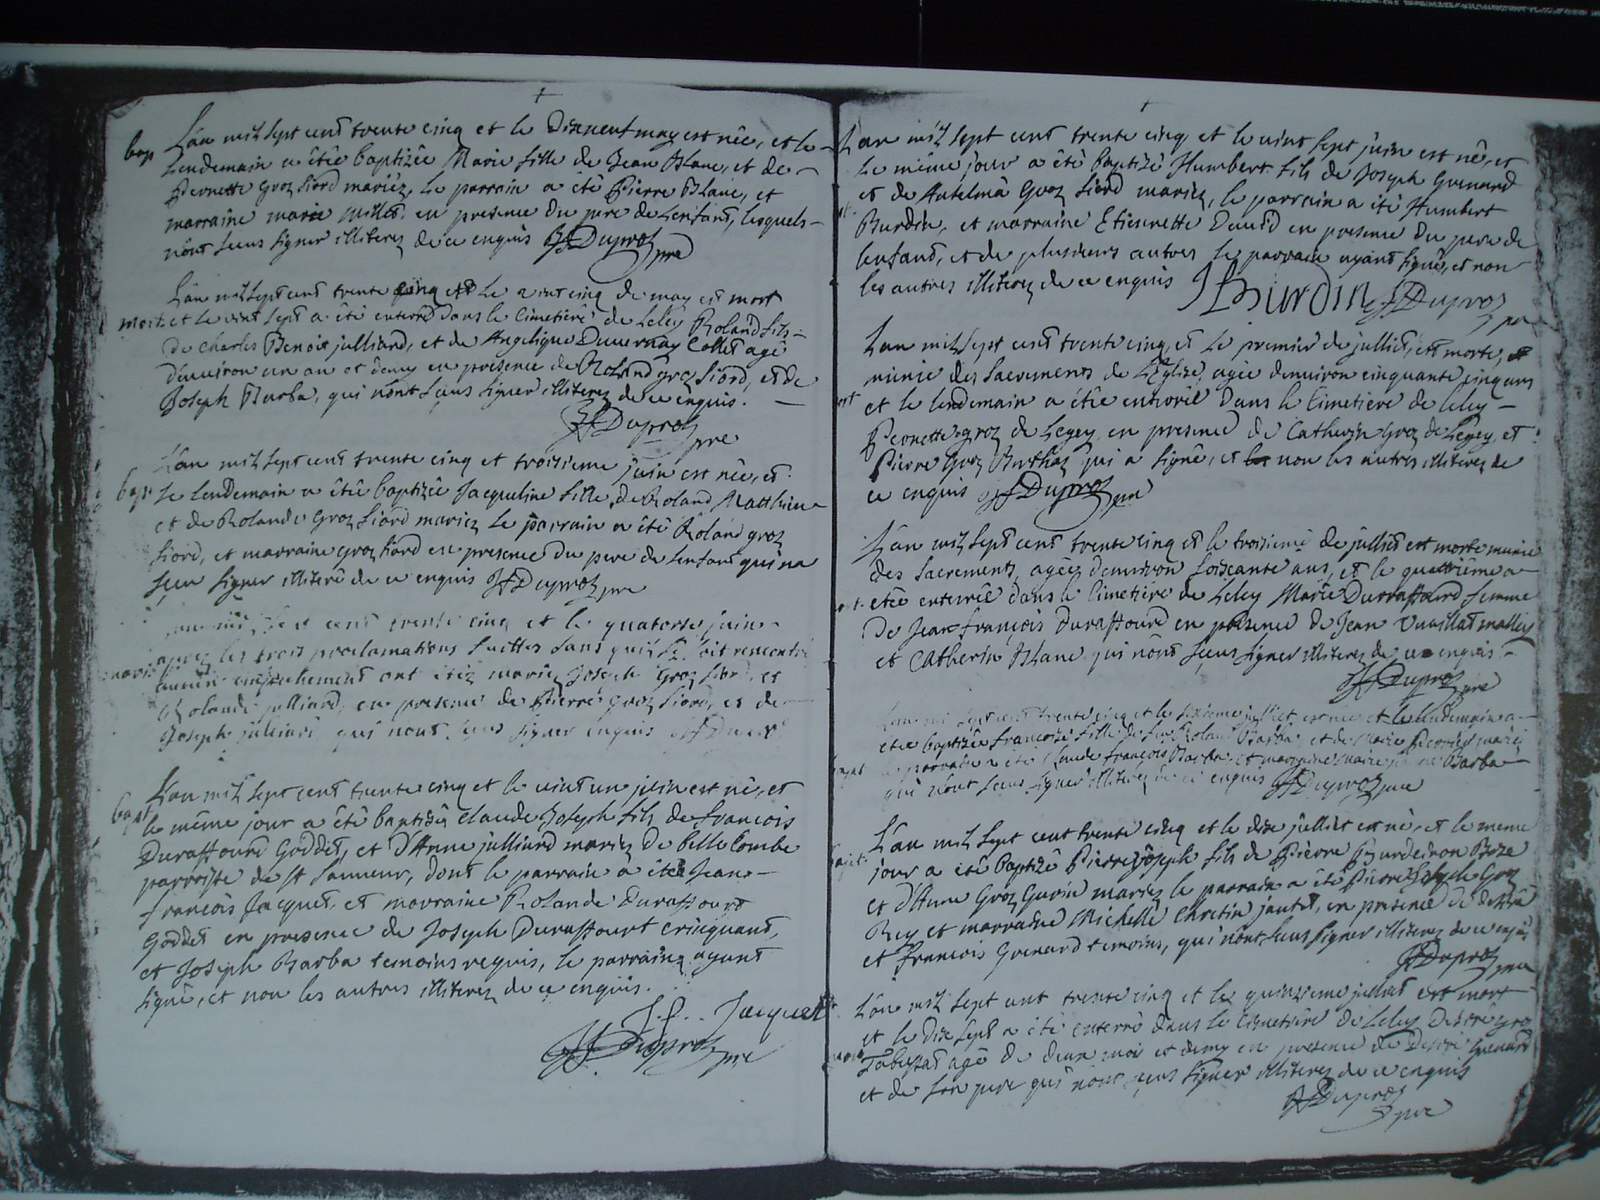 bap
L'an mil sept cent trente cinq et le Dixneuf may est née, et le
Lendemain a étée baptizée Marie fille de Jean Blanc, et de
Pernette Groz fiord mariéz, Le parrain a été Pierre Blanc, et
marraine marie millet en presence du pere de Lenfant, lesquels
n'ont sceus signer illiterez de ce enquis Duproz pre
mort
L'an mil sept cent trente cinq et Le vint cinq de may est mort
et le vint sept a été enterré dans le Cimetiére de Leley Roland fils
de Charles Benoit julliard, et de Angelique Duvernay Collet agé
d'environ un an et demy en presence de Roland groz fiord, et de
Joseph Barba, qui n'ont sçeus signer illiterez de ce enquis.
Duproz pre
bapt
L'an mil sept cent trente cinq et troisieme juin est née, et
Le lendemain a étée baptizée Jacqueline fille de Roland Matthieu
et de Rolande Groz fiord mariez Le parrain a été Roland groz
fiord, et marraine groz fiord en presence du pere de Lenfant qui n'a
sceu signer illiteré de ce enquis Duproz pre
L'an mil sept cent trente cinq et le quatorse juin
apres les trois proclamations faittes sans qu'il se soit rencontré
aucun empechement ont étéz mariez Joseph Groz fiord, et
Rolande julliard, en presence de Pierre groz fiord, et de
Joseph julliard qui n'ont sceus signer enquis
bapt
L'an mil sept cent trente cinq et le vint un juin est né, et
le même jour a été baptizé Claude Joseph fils de francois
Duraffourd Goddet, et d'Anne julliard mariez de belle Combe
parroisse de st Sauveur, dont le parrain a été Jean
francois Jacquet, et marraine Rolande Duraffourd
Goddet en presence de Joseph Duraffourt crinquant,
et Joseph Barba temoins requis, le parrain ayant
signé, et non les autres illiterez de ce enquis.
J. f. Jacquet
Duproz pre
L'an mil sept cent trente cinq et le vint sept juin est né, et
le même jour a été baptizé Humbert fils de Joseph Grenard
et de Antelma Groz fiord mariez, le parrain a été Humbert
Burdin, et marraine Etiennette David en presence du pere de
lenfant, et de plusieurs autres le parrain ayant signé, et non
les autres illiterez de ce enquis Burdin Duproz
pre
L'an mil sept cent trente cinq, et Le premier de julliet, est morte,
munie des Sacrements de L'Eglise, agée d'environ cinquante cinq ans
et le lendemain a étée enterrée dans le Cimetiére de Leley
Pernette groz de Legey en presence de Catherin groz de Legey, et
Pierre Groz Berthaz qui a signé, et non les autres illiterez de
ce enquis Duproz pre
L'an mil sept cent trente cinq et le troisieme de julliet est morte munie
des Sacrements, agée d'environ soixante ans, et le quatrieme a
étée enterrée dans le Cimetiére de Leley Marie Duraffourd femme
de Jean françois Duraffourd en presence de Jean Vuaillat
et Catherin Blanc qui n'ont sceus signer illiterez de ce enquis
Duproz
pre
L'an mil sept cent trente cinq et le sixieme julliet est née et le lendemain a
étée baptizée francoise fille de Roland Barba et de Marie
parrain a été Claude francois Barba et marraine Marie Barba
qui n'ont sceus signer illiterez de ce enquis Duproz pre
L'an mil sept cent trente cinq et le dix julliet est né, et le meme
jour a été baptizé Pierre joseph fils de Pierre Bourdeiron Boze
et d'Anne Groz Gurin mariez le parrain a été Pierre Joseph Groz
Rey et marraine Michelle Chretin jantet, en presence de
et Francois Grenard temoins, qui n'ont sceus signer illiterez de ce enquis
Duproz
pre
L'an mil sept cent trente cinq et le quinzieme julliet est mort
et le dix sept a été enterré dans le cimetiére de Leley
agé de deux moi et demy en presence de
et de son pere qui n'ont sceus signer illiterez de ce enquis
Duproz
pre